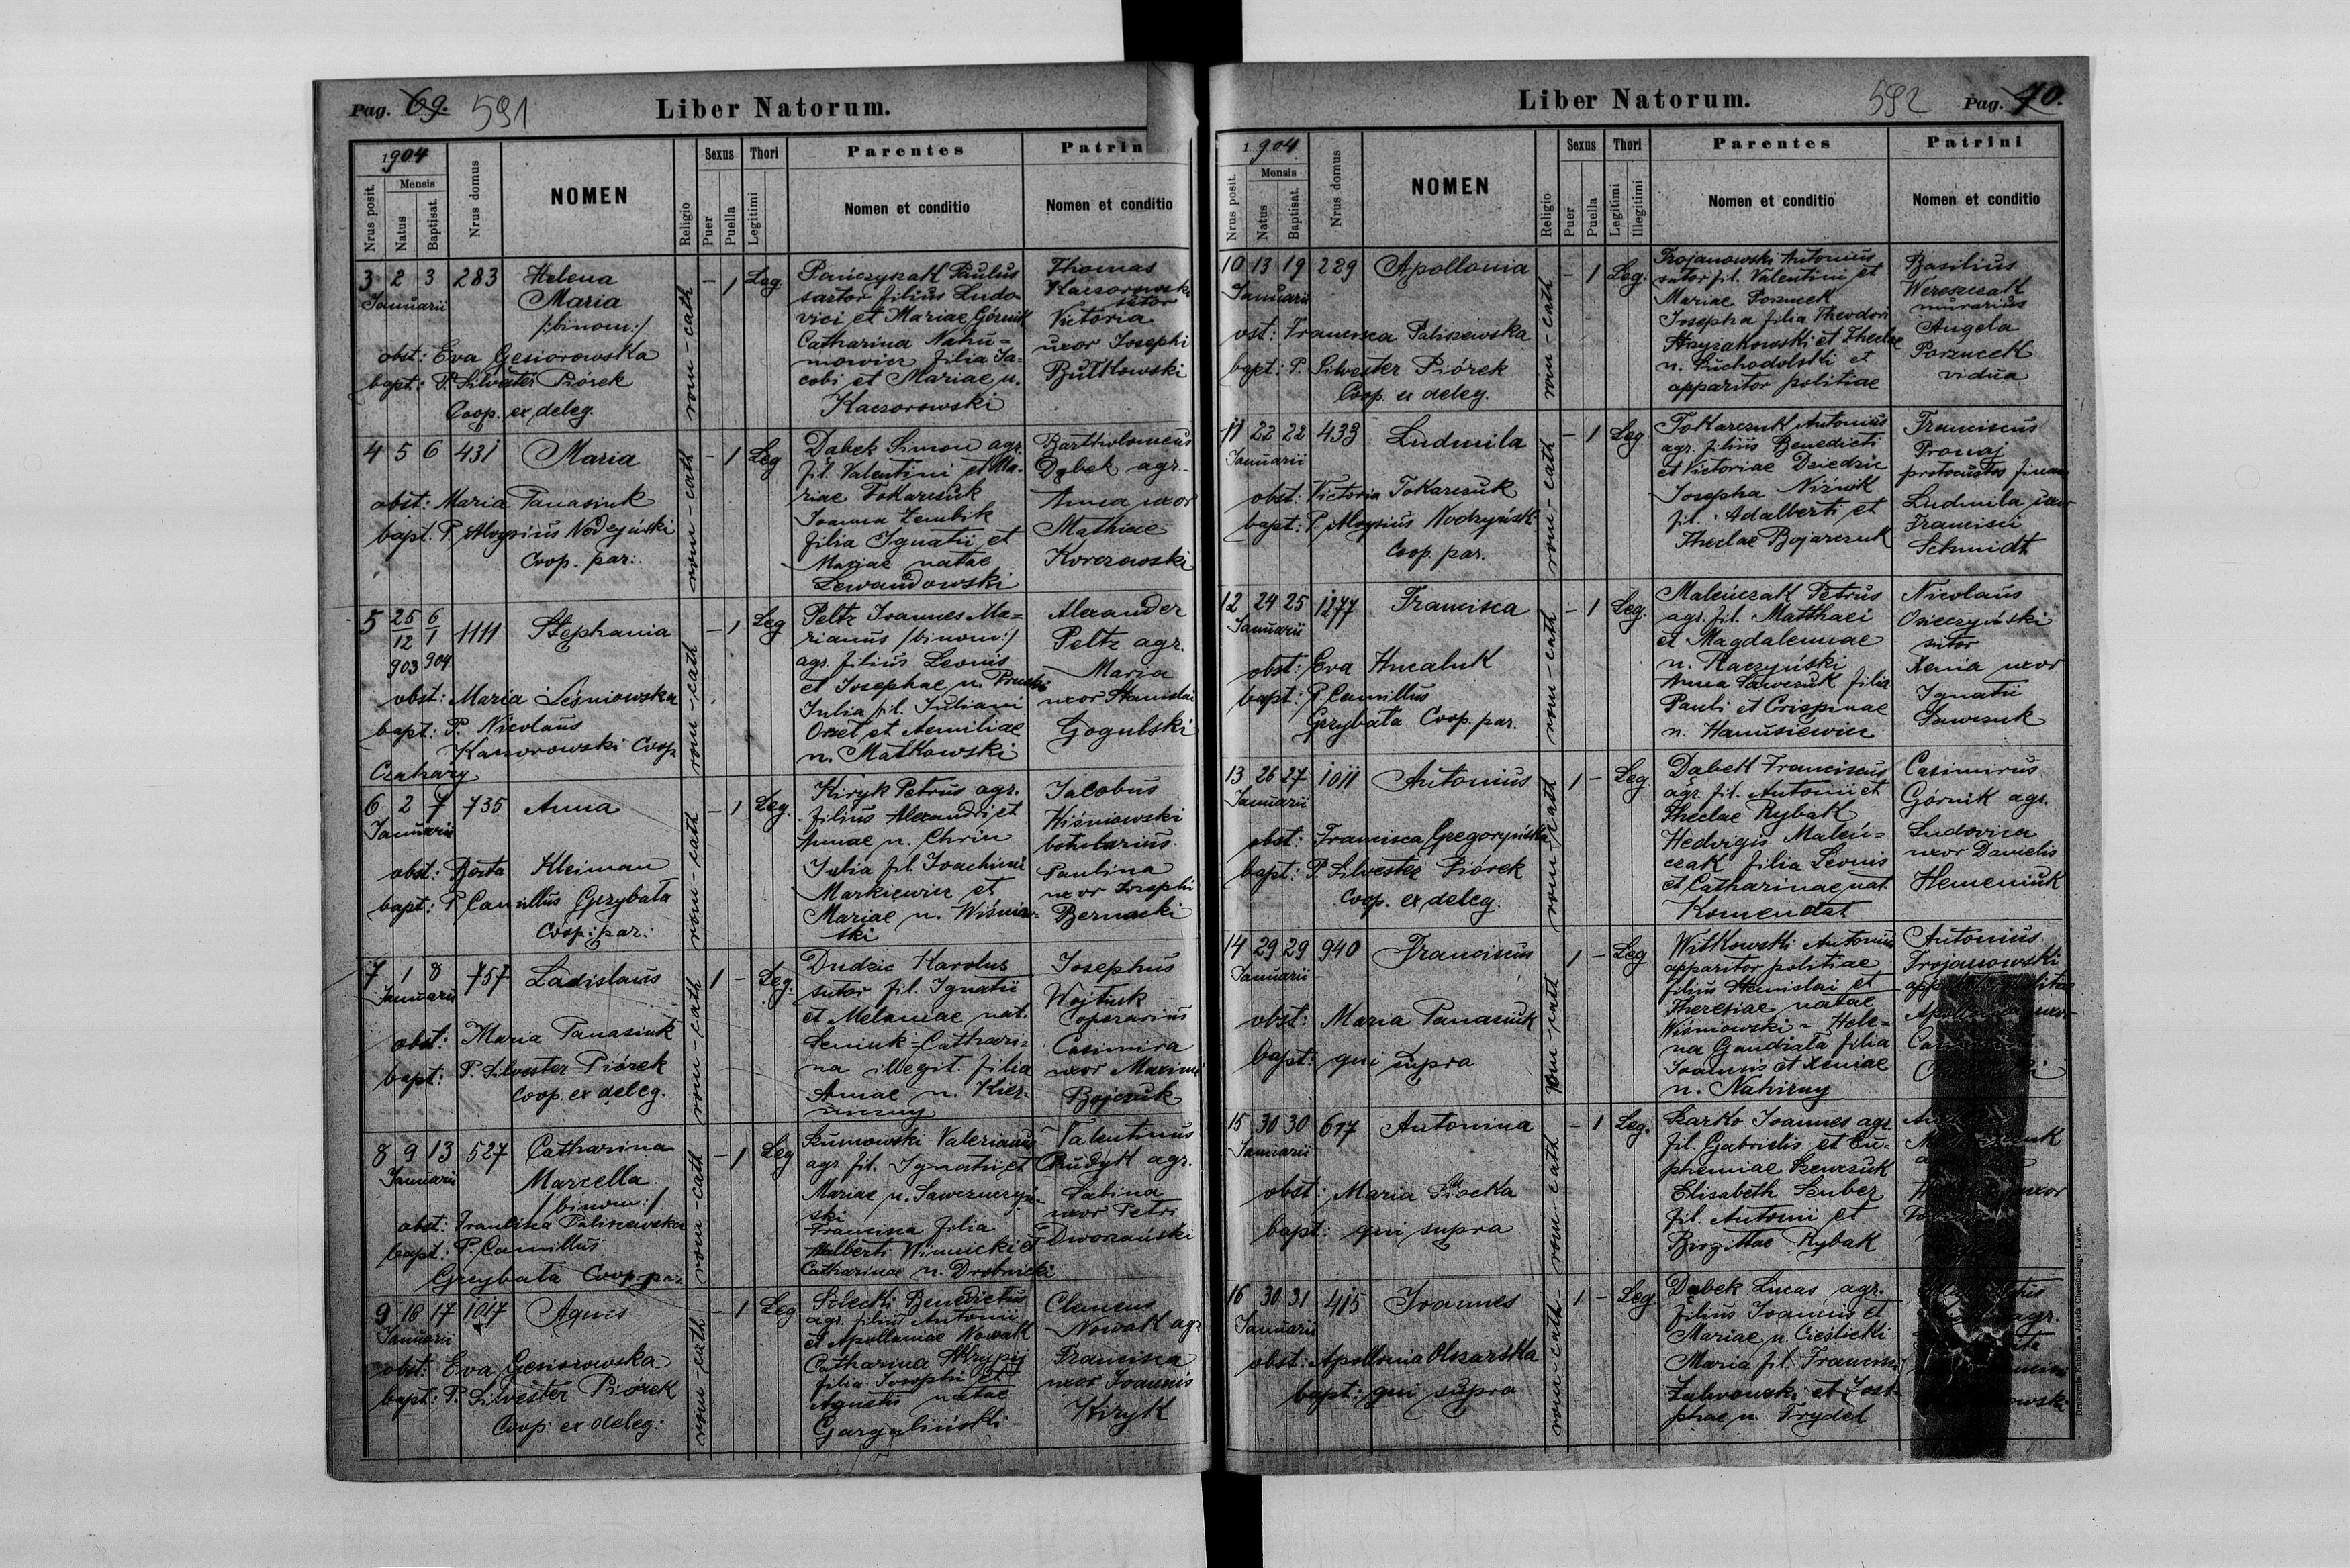 Pag. 69. 591 Liber Natorum.
1904 Nrus posit. Mensis Natus Baptisat. Nrus domus NOMEN Religio Sexus Puer Puella Thori Legitimi Parentes Nomen et conditio Patrin Nomen et conditio
3 2 3 283 Helena rom-cath - 1 Leg.
Januarii Maria
/:binom:/
obst: Eva Gesiorowska
bapt: P. Silvester Piórek
Coop. ex deleg.
Pańczyszak Paulus
sartor filius Ludo-
vici et Mariae Górnik
Catharina Nahu-
mowicz filia Ja-
cobi et Mariae n.
Kaczorowski
Thomas
Kaczorowski
sutor
Victoria
uxor Josephi
Butkowski
4 5 6 431 Maria rom-cath - 1 Leg
obst: Maria Panasiuk
bapt. P. Aloysius Nodzyński
Coop. par:
Dąbek Simon agr.
fil. Valentini et Ma-
riae Tokarczuk
Joanna Zembik
filia Ignatii et
Mariae natae
Lewandowski
Bartholomeus
Dąbek agr.
Anna uxor
Mathiae
Korczowski
5 25/12 903 6/1 904 1111 Stephania rom-cath - 1 Leg
obst: Maria Leśniowska
bapt: P. Nicolaus
Kaczorowski Coop
Czahary
Peltz Joannes Ma-
rianus /binom:/
agr. filius Leonis
et Josephae n. Pruski
Julia fil. Juliani
Orzet et Aemiliae
n. Matkowski
Alexander
Peltz agr.
Maria
uxor Stanislai
Gogulski
6 2 7 735 Anna rom-cath - 1 Leg.
Januarii
obst: Berta Kleiman
bapt: P. Camillus Grzybała
Coop: par:
Kiryk Petrus agr.
filius Alexandri et
Annae n. Chrin
Julia fil. Joachimi
Markiewicz et
Mariae n. Wiśniow-
ski
Jacobus
Wiśniowski
botularius
Paulina
uxor Josephi
Bernacki
7 1 8 757 Ladislaus rom-cath 1 - Leg.
Januarii
obst: Maria Panasiuk
bapt: P. Silvester Piórek
Coop. ex deleg.
Dudzic Karolus
sutor fil. Ignatii
et Melaniae nat.
Seniuk-Cathari-
na illegit. filia
Annae n. Kier-
niczny
Josephus
Wojtiuk
operarius
Casimira
uxor Maximi
Bojczuk
8 9 13 527 Catharina rom-cath - 1 Leg
Januarii Marcella
/binom:/
obst: Francisca Paliszewska
bapt: P. Camillus
Grzybała Coop. par.
Szumowski Valerianus
agr. fil. Ignatii et
Mariae n. Sawerczyń-
ski
Francisca filia
Adalberti Winnicki et
Catharinae n. Drobnicki
Valentinus
Rudyk agr.
Sabina
uxor Petri
Dworzański
9 16 17 1017 Agnes rom-cath - 1 Leg
Januarii
obst: Eva Gesiorowska
bapt: P. Silvester Piórek
Coop ex deleg:
Solecki Benedictus
agr. filius Antonii
et Apolloniae Nowak
Catharina Skrypij
filia Josephi et
Agnetis natae
Gargaliński
Clemens
Nowak agr
Francisca
uxor Joannis
Kiryk
Liber Natorum. 592 Pag. 70.
1904 Nrus posit. Mensis Natus Baptisat. Nrus domus NOMEN Religio Sexus Puer Puella Thori Legitimi Illegitimi Parentes Nomen et conditio Patrini Nomen et conditio
10 13 19 229 Apollonia rom-cath - 1 Leg.
Januarii
obst: Francisca Paliszewska
bapt: P. Silvester Piórek
Coop. ex deleg.
Trojanowski Antonius
sutor fil. Valentini et
Mariae Porzucek
Josepha filia Theodori
Strzyżakowski et Theclae
n. Suchodolski et
apparitor politiae
Basilius
Wereszczak
murarius
Angela
Porzucek
vidua
11 22 22 433 Ludmila rom-cath - 1 Leg
Januarii
obst: Victoria Tokarczuk
bapt: P. Aloysius Nodzyński
Coop. par.
Tokarczuk Antonius
agr. filius Benedicti
et Victoriae Dziedzic
Josepha Niżnik
fil. Adalberti et
Theclae Bojarczuk
Franciscus
Pronaj
protocustos finan
Ludmila uxor
Francisci
Schmidt
12 24 25 1277 Francisca rom-cath - 1 Leg.
Januarii
obst: Eva Hucaluk
bapt: P. Camillus
Grzybała Coop. par.
Maleńczak Petrus
agr. fil. Matthaei
et Magdalennae
n. Raczyński
Anna Sawczuk filia
Pauli et Crispinae
n. Hanusiewicz
Nicolaus
Osieczyński
sutor
Xenia uxor
Ignatii
Sawczuk
13 26 27 1011 Antonius rom-cath 1 - Leg
Januarii
obst: Francisca Gregoryńska
bapt: P. Silvester Piórek
Coop. ex deleg.
Dabek Franciscus
agr. fil. Antonii et
Theclae Rybak
Hedvigis Maleń-
czak filia Leonis
et Catharinae nat.
Komendat
Casimirus
Górnik agr.
Ludovica
uxor Danielis
Hemeniuk
14 29 29 940 Franciscus rom-cath 1 - Leg
Januarii
obst: Maria Panasiuk
bapt: qui supra
Witkowski Antonius
apparitor politiae
filius Stanislai et
Theresiae natae
Wiśniowski - Hele-
na Gandziala filia
Joannis et Xeniae
n. Nahirny
Antonius
Trojanowski
politiae
uxor
15 30 30 677 Antonina rom-cath - 1 Leg.
Januarii
obst: Maria
bapt: qui supra
Szarko Joannes agr.
fil. Gabrielis et Eu-
phemiae Szewczuk
Elisabeth Szuber
fil. Antonii et
Birgittae Rybak
uxor
16 30 31 415 Joannes rom-cath 1 - Leg.
Januarii
obst: Apollonia Olszarska
bapt: qui supra
Dąbek Lucas agr.
filius Joannis et
Mariae n. Cieślicki
Maria fil. Francisci
et Jose-
phae n. Frydel
agr.
Drukarnia Katolicka Józefa Chęcińskiego Lwów.